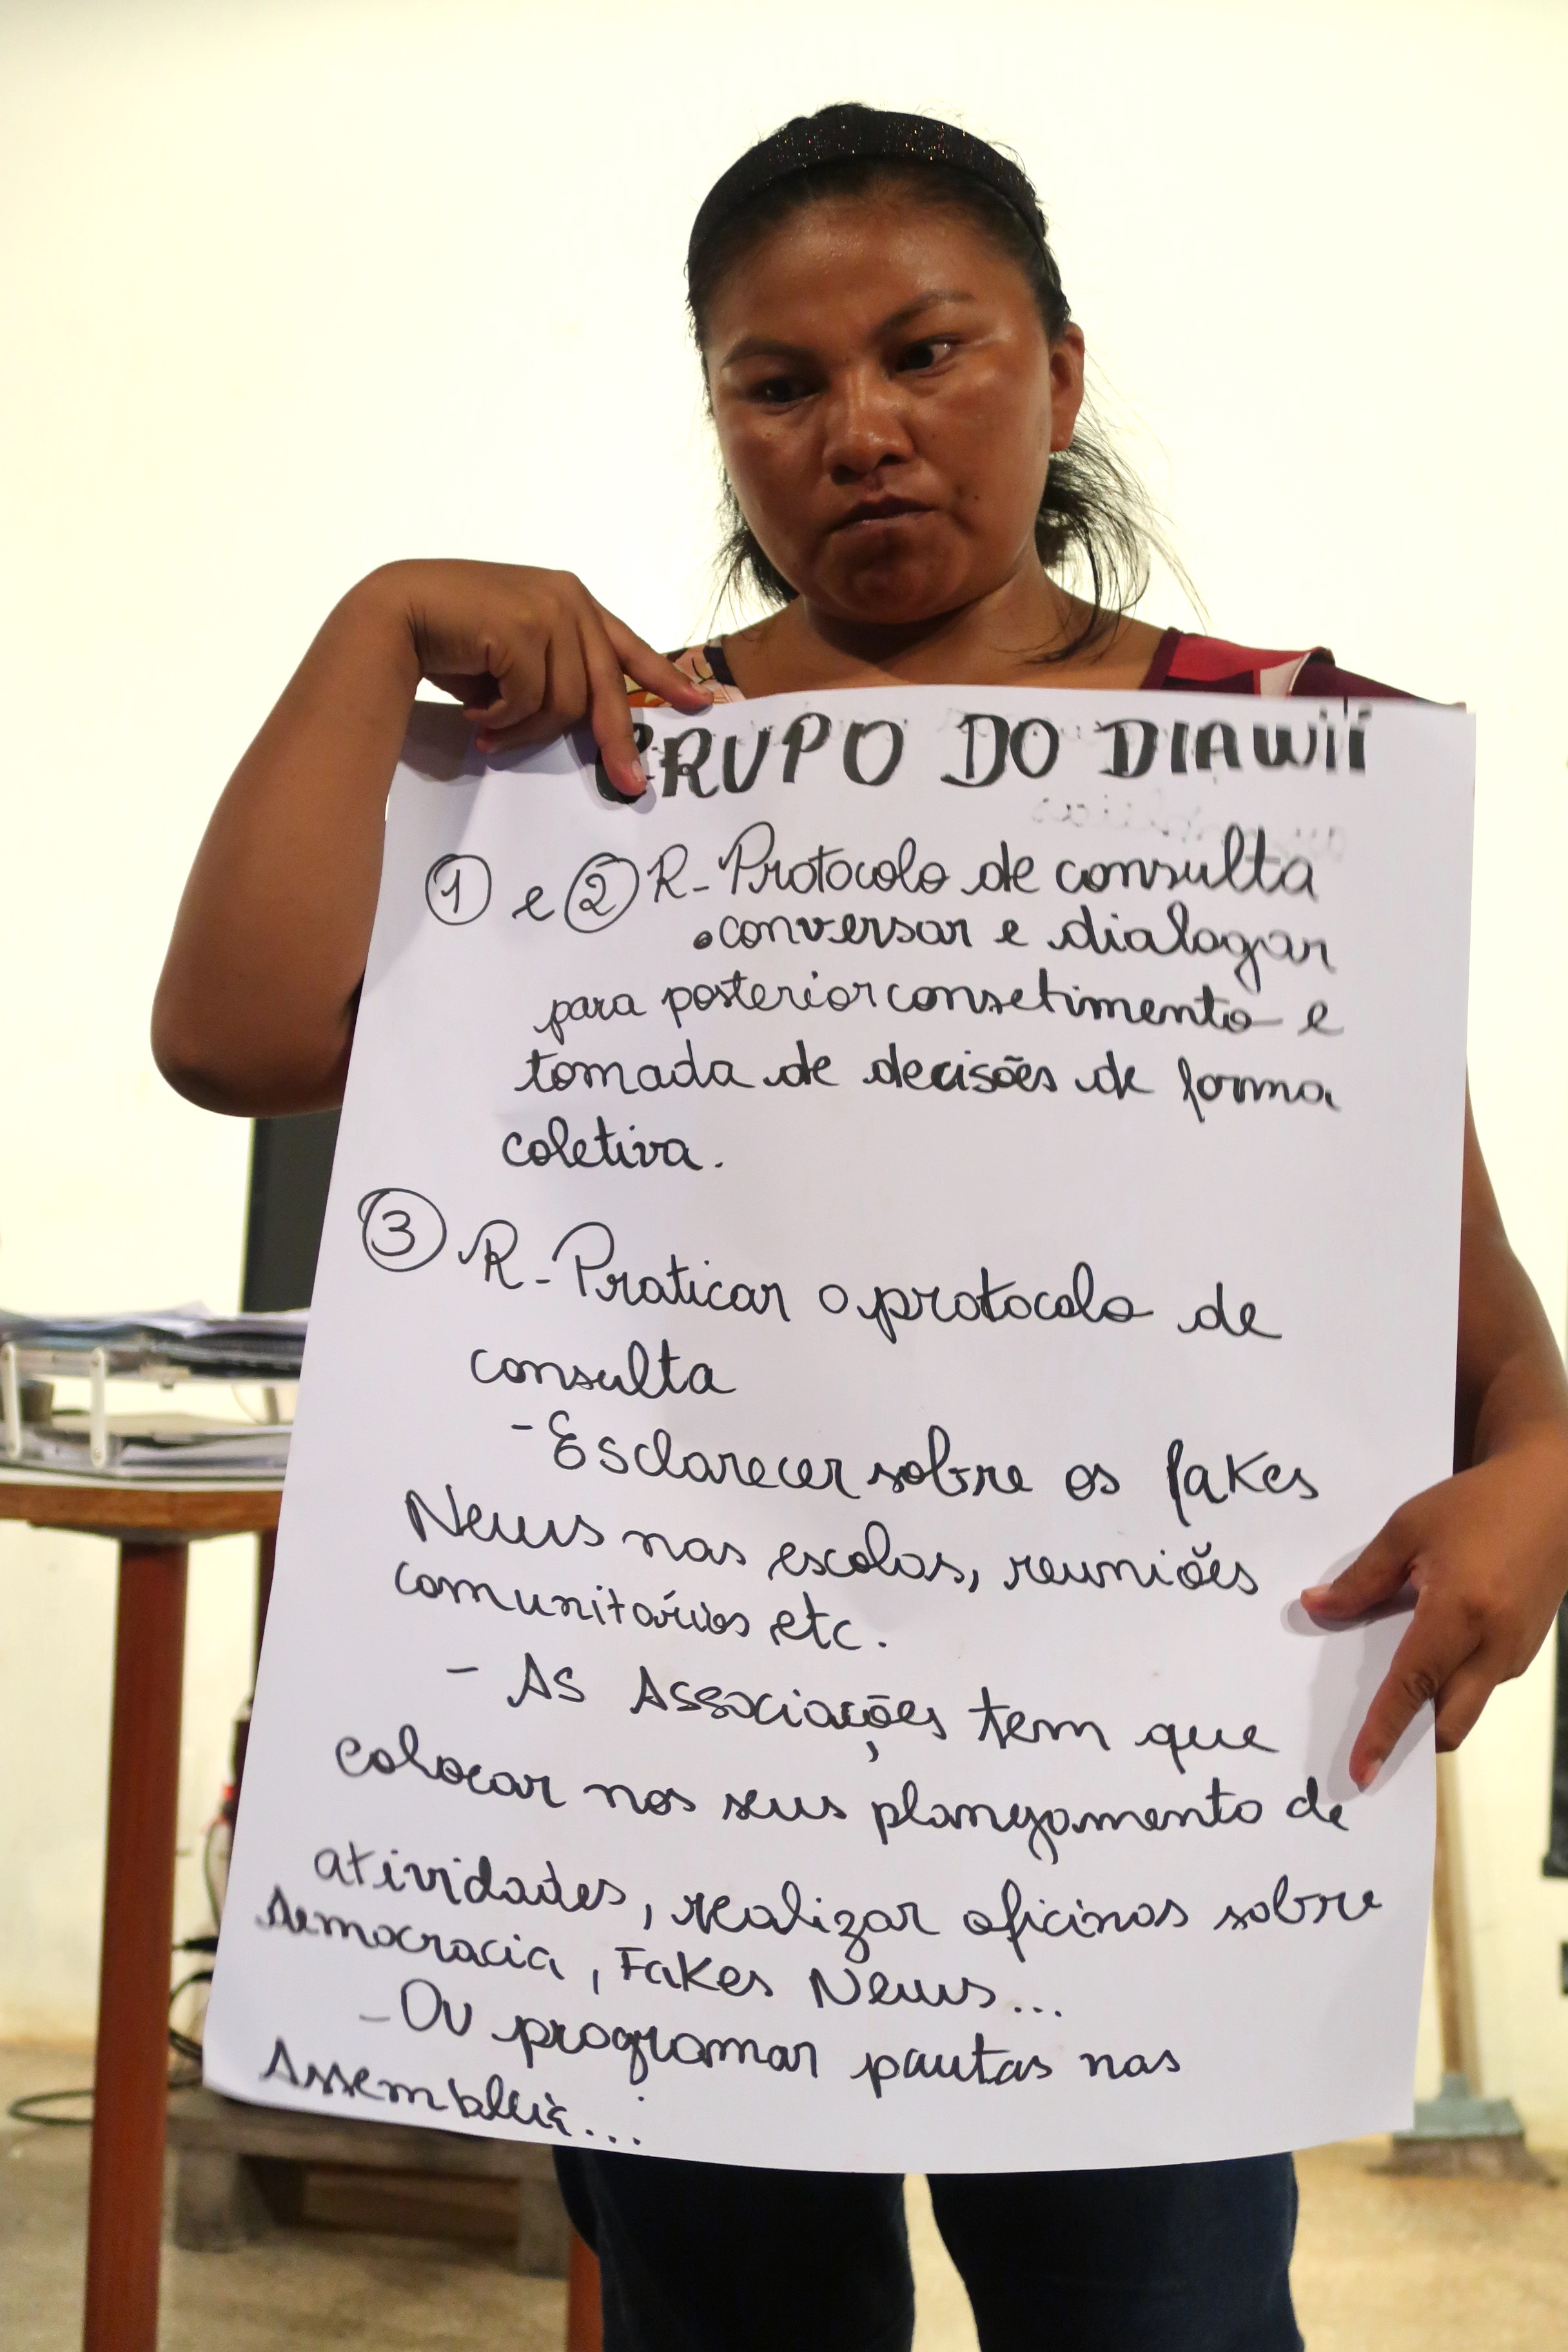 GRUPO DO DIAWIÍ
① e ② R- Protocolo de consulta
• conversar e dialogar
para posterior consetimento e
tomada de decisões de forma
coletiva.
③ R- Praticar o protocolo de
consulta
- Esclarecer sobre os fakes
News nas escolas, reuniões
comunitárias etc.
- As Associações tem que
colocar nos seus planejamento de
atividades, realizar oficinas sobre
democracia, Fakes News...
- Ou programar pautas nas
Assembleia...